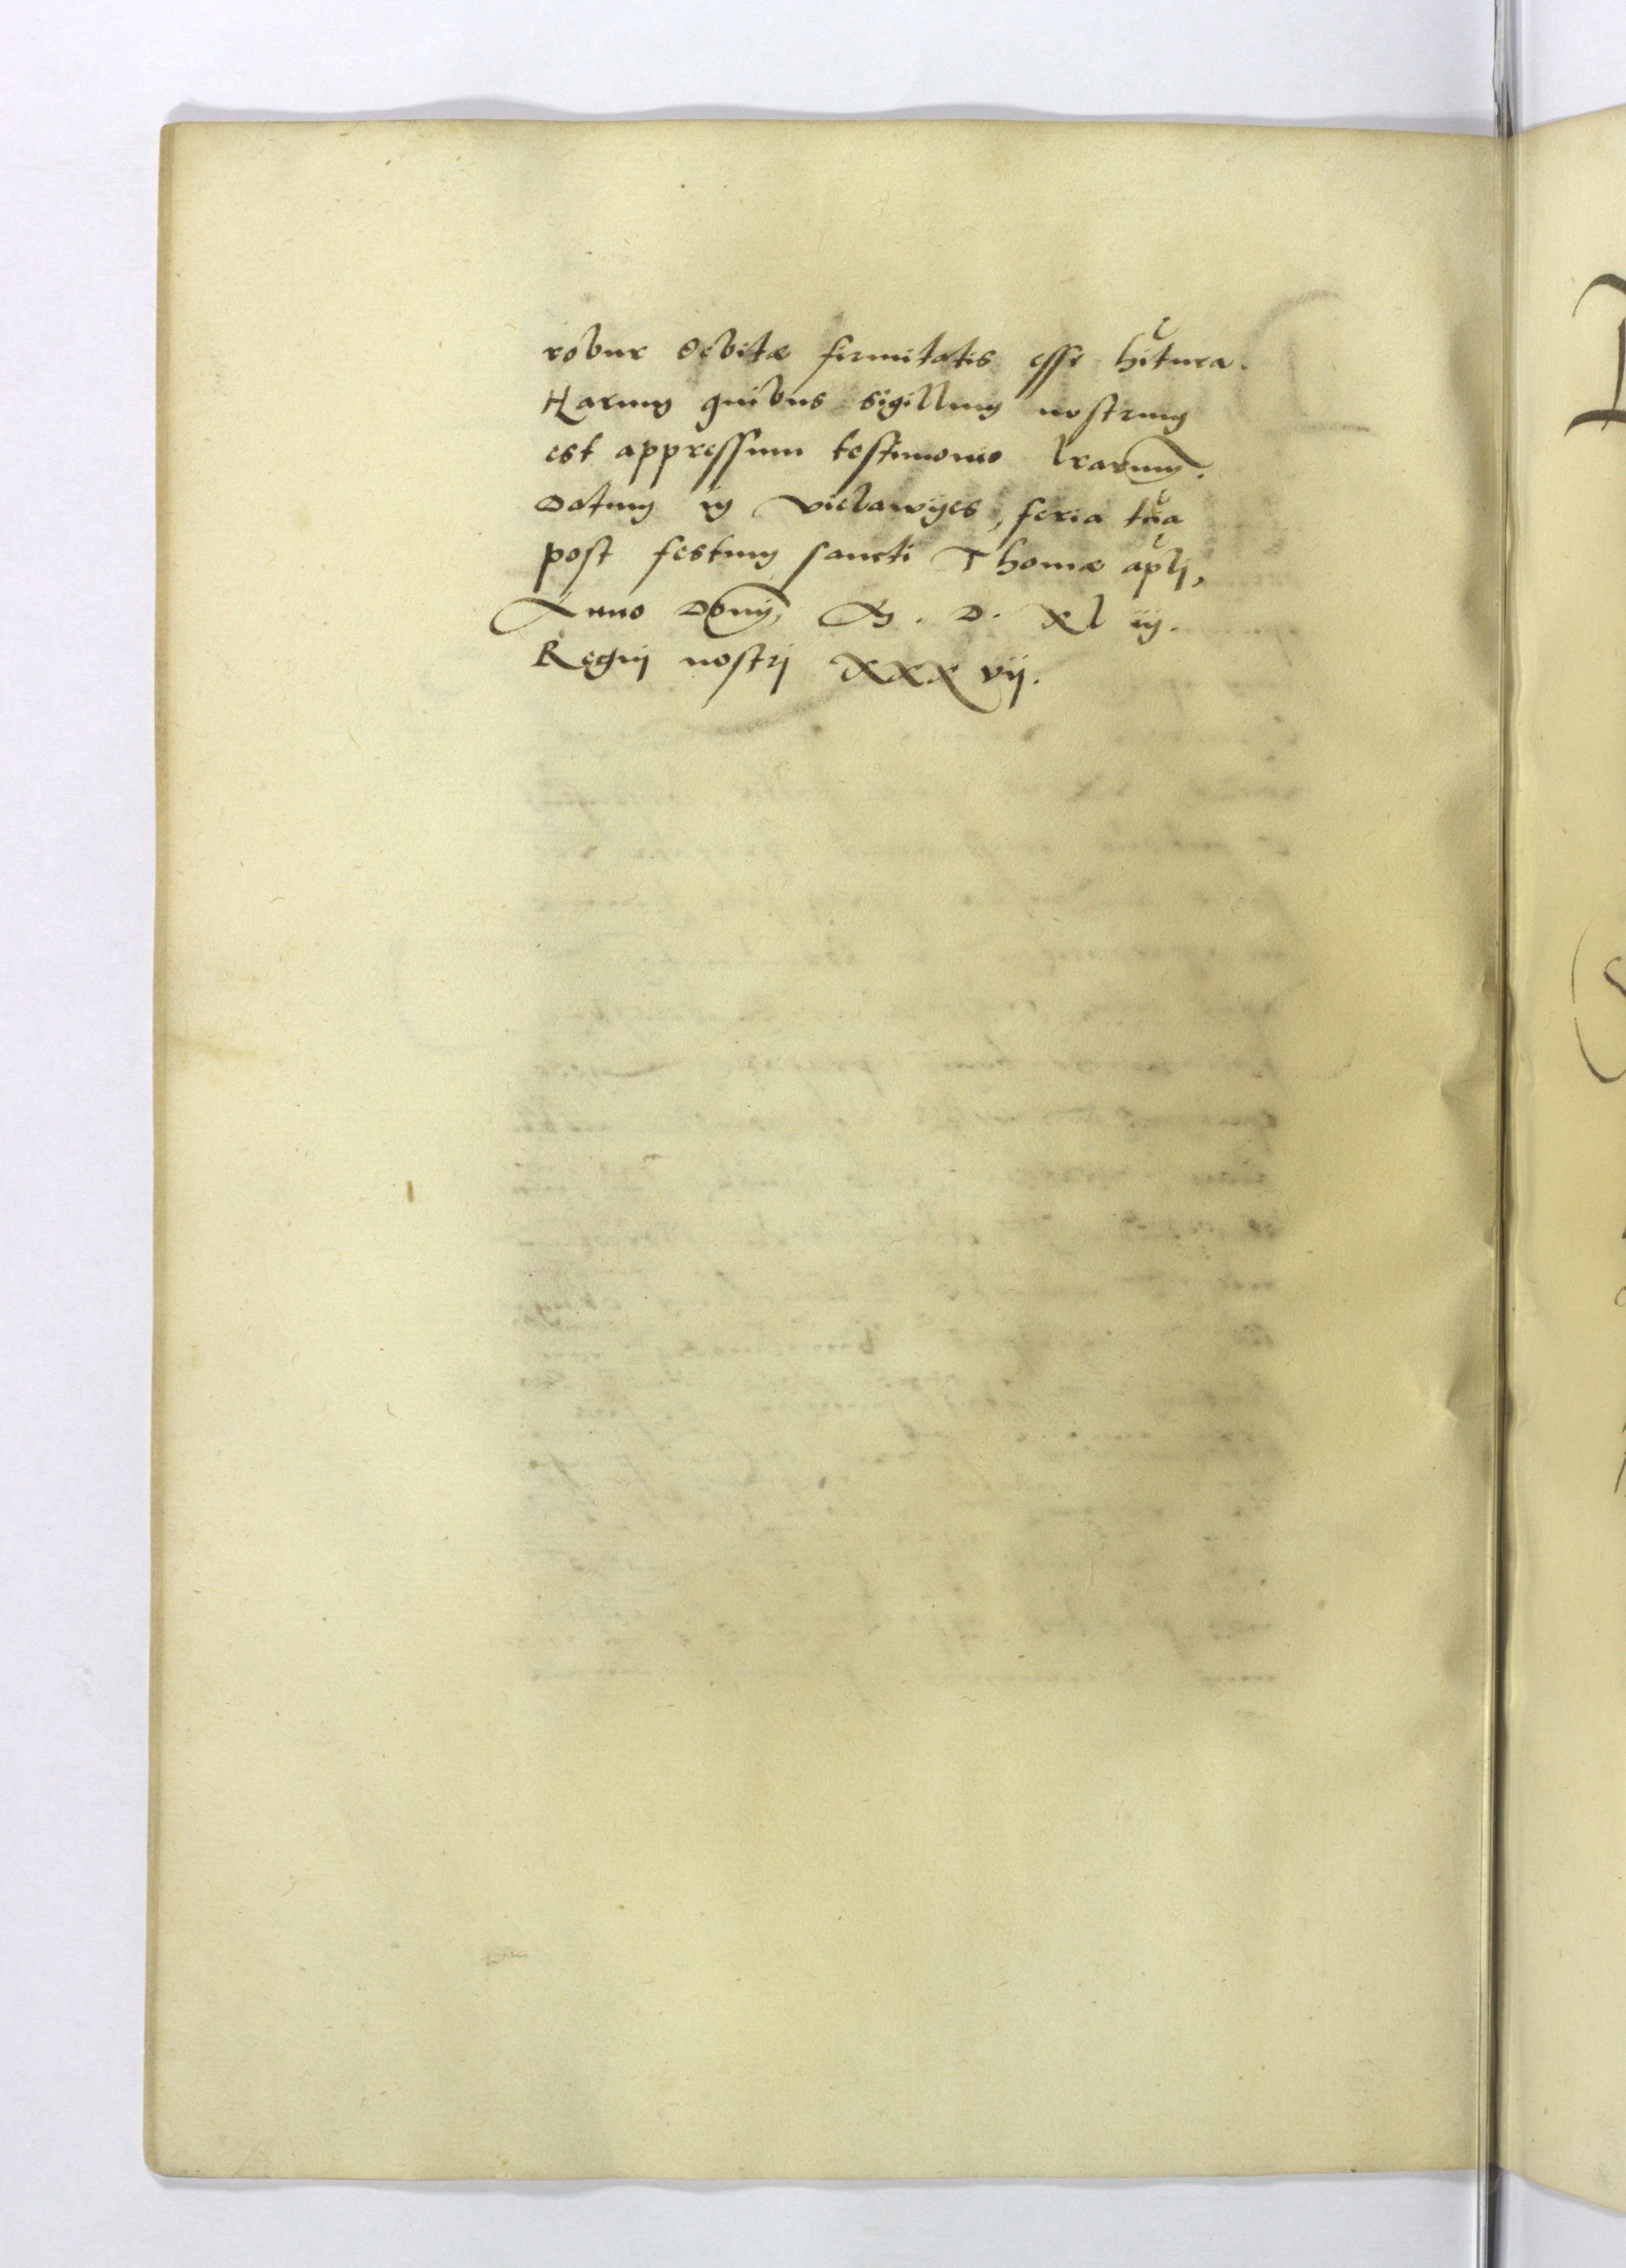 robur debitæ firmitatis esse hitura.
Harum quibus sigillum nostrum
est appressum testimonio lrarum.
Datum in Vielawyes, feria tua
post festum sancti Thomæ apli,
Anno Dom, M. D. Xl iij.
Regnj nostrj XXX vij.